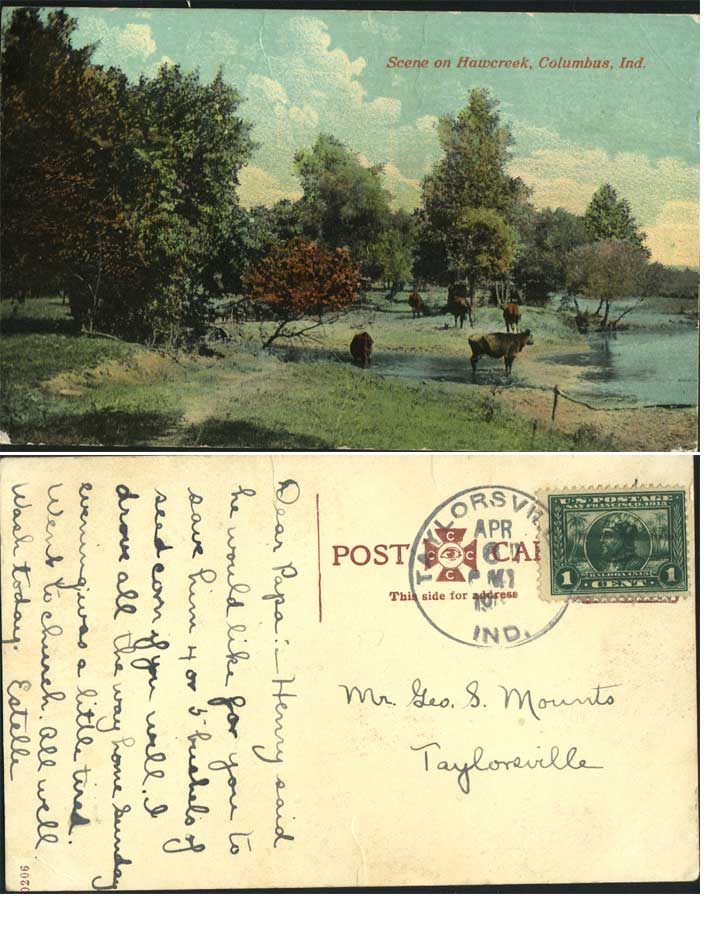 Scene on Hawcreek, Columbus, Ind.
Dear Papa:- Henry said
he would like for you to
save him 4 or 5 bushels of
seed corn if you will. I
drove all the way home Sunday
evening was a little tired.
Went to church. All well
Wash today. Estelle
9020
POST CAR
This side for address
TAYLORSVILLE
APR
PM
191
IND.
U.S. POSTAGE
SAN FRANCISCO, 1915
BALBOA 1513
1 CENT. 1
Mr. Geo. S. Mounts
Taylorsville